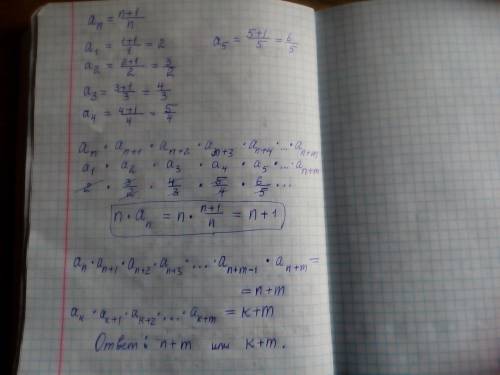 aₙ = (n+1)/n
a₁ = (1+1)/1 = 2 a₅ = (5+1)/5 = 6/5
a₂ = (2+1)/2 = 3/2
a₃ = (3+1)/3 = 4/3
a₄ = (4+1)/4 = 5/4
aₙ · aₙ₊₁ · aₙ₊₂ · aₙ₊₃ · aₙ₊₄ · ... · aₙ₊ₘ
a₁ · a₂ · a₃ · a₄ · a₅ · ... · aₙ₊ₘ
2 · 3/2 · 4/3 · 5/4 · 6/5 ...
n · aₙ = n · (n+1)/n = n+1
aₙ · aₙ₊₁ · aₙ₊₂ · aₙ₊₃ · ... · aₙ₊ₘ₋₁ · aₙ₊ₘ =
= n+m
aₖ · aₖ₊₁ · aₖ₊₂ · ... · aₖ₊ₘ = к+m
Ответ: n+m или к+m.